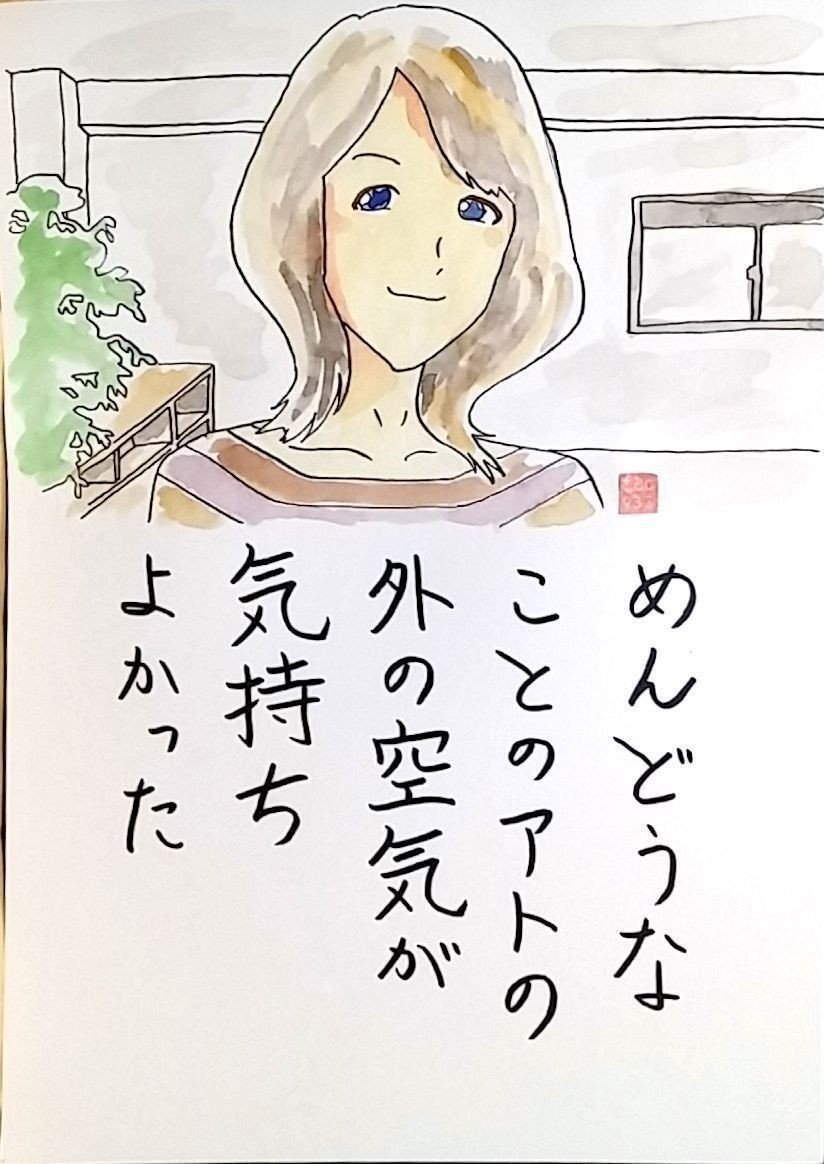 めんどうな
ことのアトの
外の空気が
気持ち
よかった